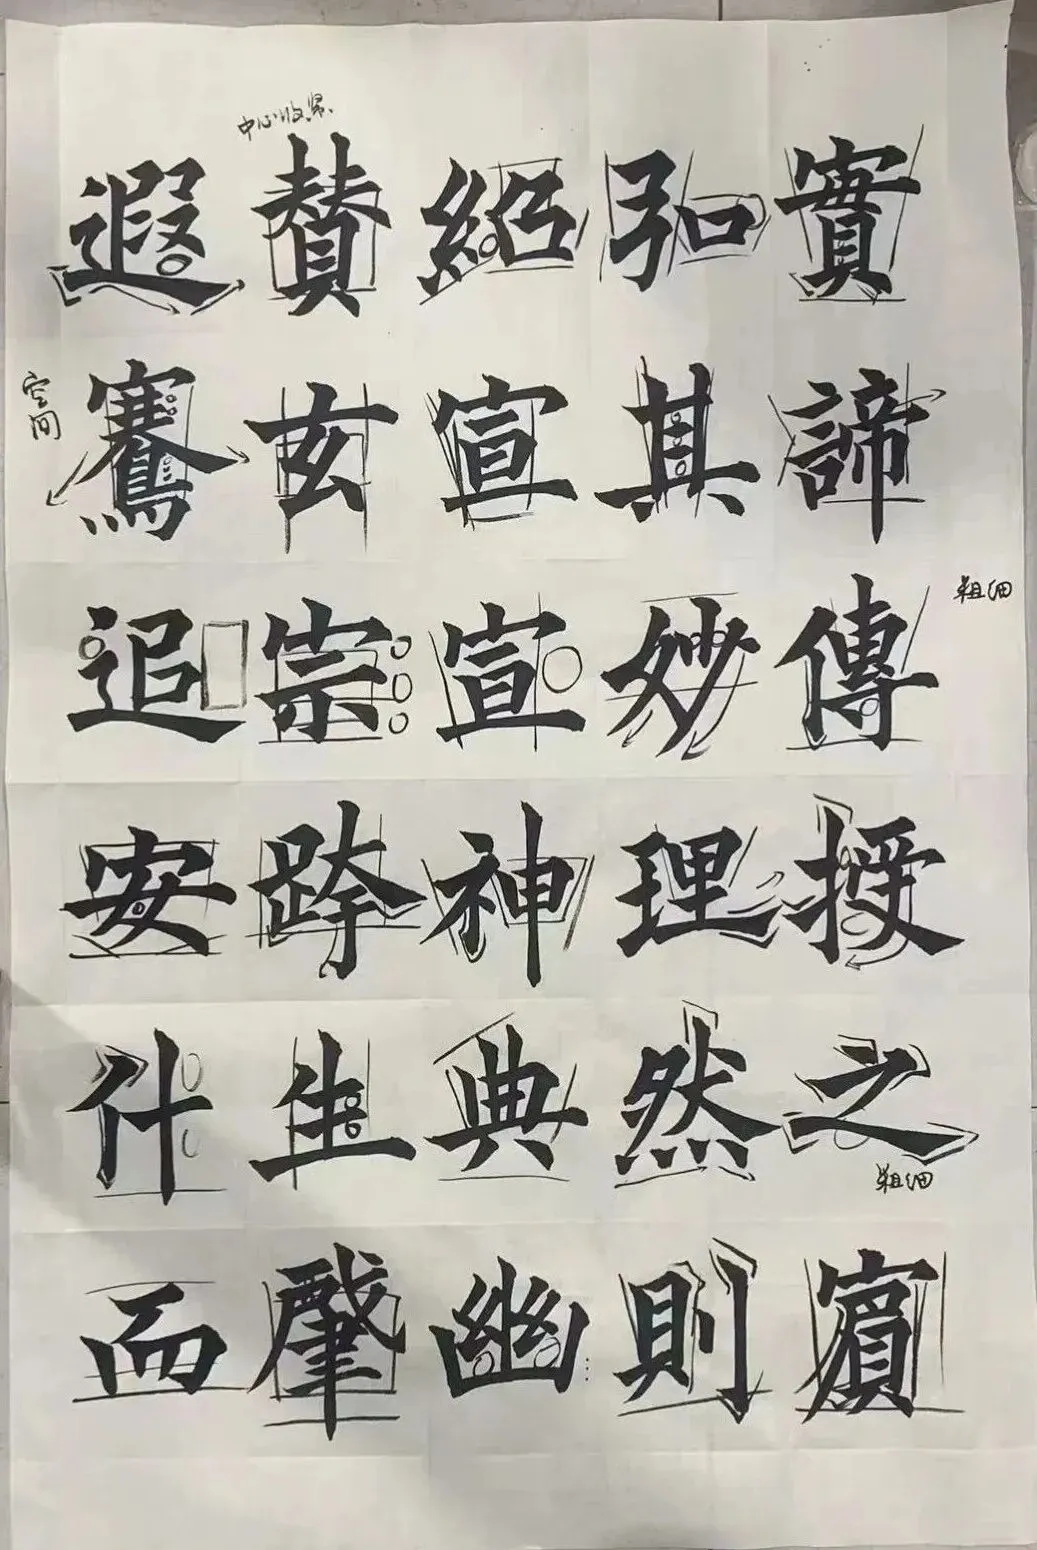 實諦傳授之賓
弘其妙理然則
紹宣宣神典幽
贊玄宗跨生肇
遐騫追安什而
中心收紧
空间
粗细
粗细